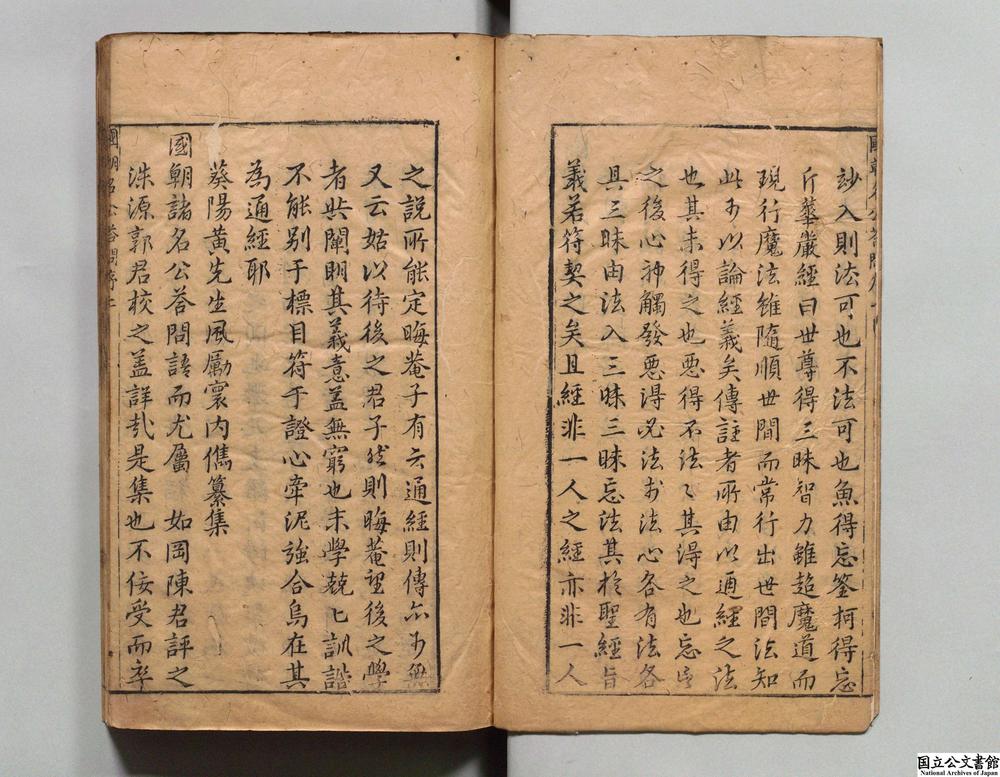 妙入則法可也不法可也魚得忘筌柯得忘
斤華嚴經曰世尊得三昧智力雖超魔道而
現行魔法雖隨順世間而常行出世間法知
此可以論經義矣傳註者所由以通經之法
也其未得之也惡得不法〻其得之也忘
之後心神觸發惡得必法於法心各有法各
具三昧由法入三昧三昧忘法其於聖經旨
義若符契之矣且經非一人之經亦非一人
之說所能定晦菴子有云通經則傳亦可無
又云姑以待後之君子然則晦菴望後之學
者与闡明其義意盖無窮也末學兢〻訓詁
不能別于標目符于證心牽泥強合烏在其
為通經耶
葵陽黃先生風勵寰內儁纂集
國朝諸名公答問語而尤屬 如岡陳君評之
洙源郭君校之盖詳哉是集也不佞受而卒
國朝名公答問序二
国立公文書館
National Archives of Japan